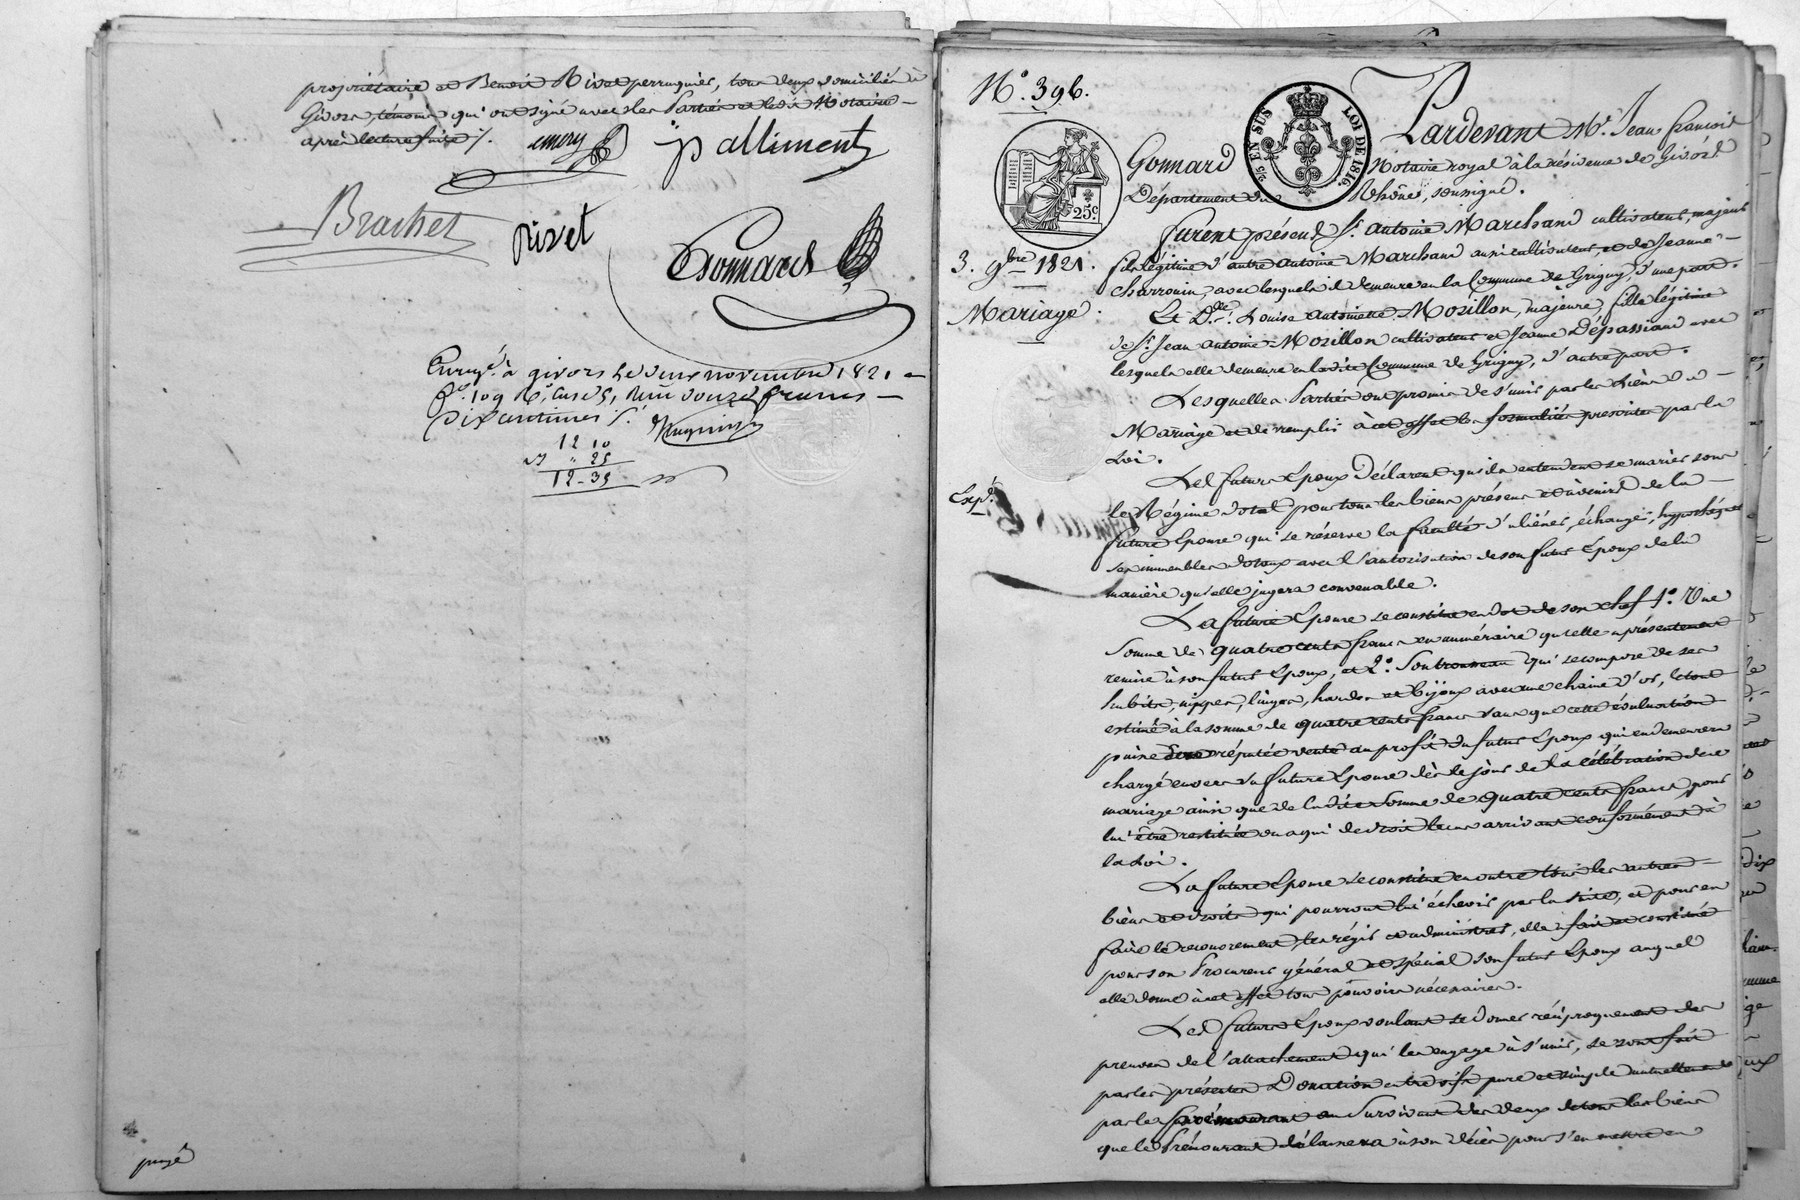 propriétaire et Benoit Rivet perruquier, tous deux domiciliés à
Givors, témoins qui ont signé avec les Parties et ledit Notaire
après lecture faite ./.
emery
jp alliment
Brachet
rivet
Gonnard
Enregé. à givors le deux novembre 1821
fo. 109 Ro. Case 5, Reçu douze francs
dix centimes ./.
12 10
25
12-35
payé
No. 396.
25c.
25 EN SUS
LOI DE 1816.
Pardevant Me. Jean françois
Gonnard Notaire royal à la résidence de Givors
Département du Rhône, soussigné.
3. 9bre 1821.
Mariage.
Expé.
furent présent Sr. Antoine Marchand cultivateur, majeur
fils légitime d'autre Antoine Marchand aussi cultivateur, et de Jeanne
Charrouin, avec lesquels il demeure en la Commune de Grigny, d'une part.
Et Dlle. Louise Antoinette Mozillon, majeure, fille légitime
de Sr. Jean Antoine Mozillon cultivateur et Jeanne Dépassiaud avec
lesquels elle demeure en ladite Commune de Grigny, d'autre part.
Lesquelles Parties ont promis de s'unir par les Liens du
Mariage et de remplir à cet effet les formalités prescrites par la
Loi.
Les futurs Epoux Déclarent qu'ils entendent se marier sous
le Régime dotal pour tous les biens présens et à venir de la
future Epouse qui se réserve la faculté d'aliéner, échanger, hypothéquer
ses immeubles dotaux avec l'autorisation de son futur Epoux de la
manière qu'elle jugera convenable.
La future Epouse se constitue en dot de son chef 1o. Une
Somme de quatre cents francs en numéraire qu'elle a présentement
remise à son futur Epoux, et 2o. Son trousseau qui se compose de ses
habits, nippes, linges, hardes et bijoux avec une chaine d'or, le tout
estimé à la somme de quatre cents francs sans que cette évaluation
puisse être réputée vente au profit du futur Epoux qui en demeurera
chargé envers sa future Epouse dès le jour de la célébration de ce
mariage ainsi que de ladite Somme de quatre cents francs, pour
lui être restitués ou à qui de droit le cas arrivant conformément à
la Loi.
La future Epouse se constitue en outre tous les autres
biens et droits qui pourront lui échevoir par la suite, et pour en
faire le recouvrement, les régir et administrer, elle fait et constitue
pour son Procureur général et spécial son futur Epoux auquel
elle donne à cet effet tous pouvoirs nécessaires.
Les futurs Epoux voulant se donner réciproquement des
preuves de l'attachement qui les engage à s'unir, se sont fait
par les présentes Donation entre vifs pure et simple mutuellement
par le Prémourant au Survivant des deux de tous les biens
que le Prémourant délaissera à son décès pour s'en mettre en